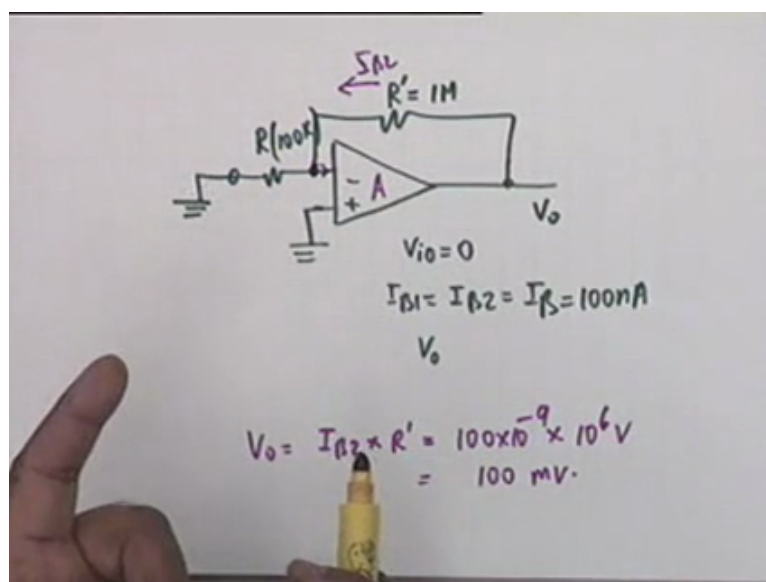 I_B2
R' = 1M
R(100K)
-
A
+
V_o
V_io = 0
I_B1 = I_B2 = I_B = 100nA
V_o
V_o = I_B2 × R' = 100×10^-9 × 10^6 V
= 100 mV.